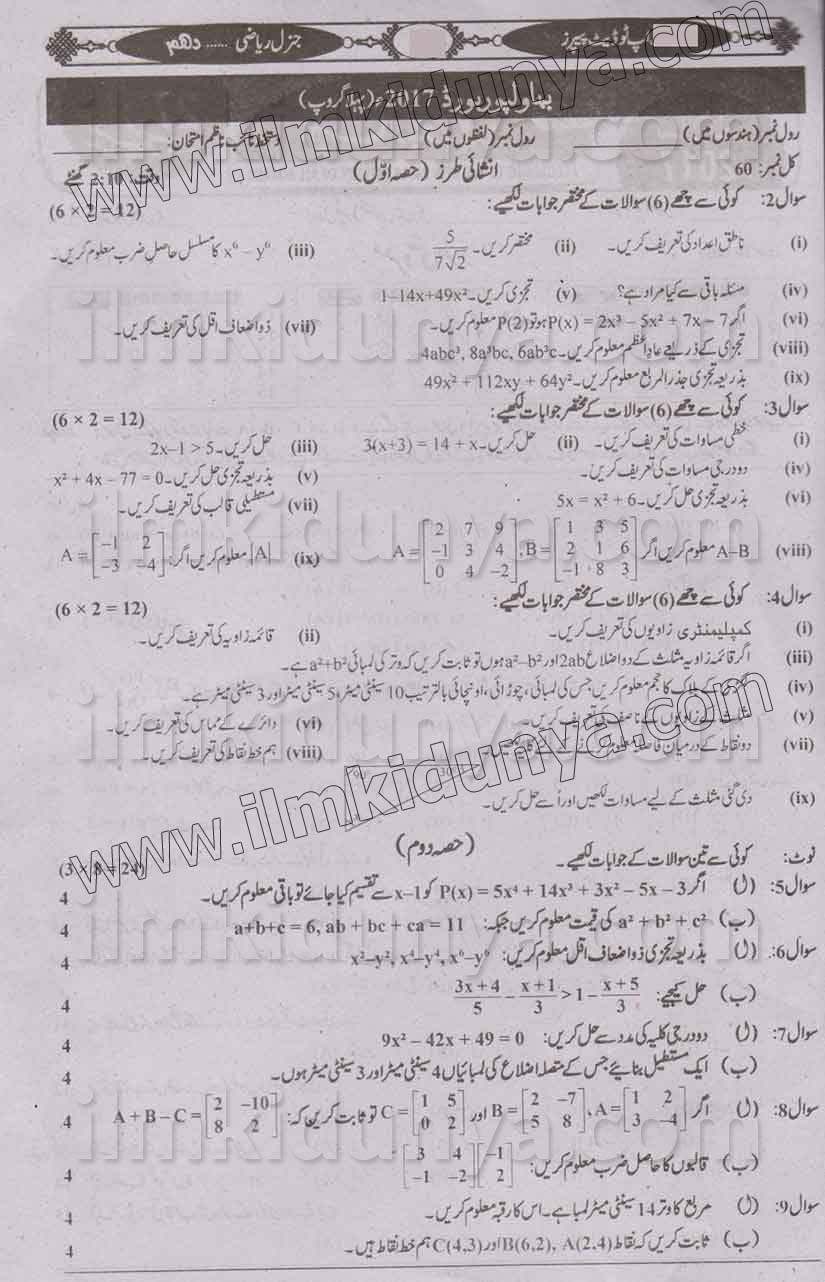 جنرل ریاضی ...... دھم
اپ ٹو ڈیٹ پیپرز
بہاولپور بورڈ 2017ء (پہلا گروپ)
رول نمبر (ہندسوں میں) ________ رول نمبر (لفظوں میں) ________ دستخط نائب ناظم امتحان:
کل نمبر: 60 انشائی طرز (حصہ اوّل) وقت: 2:10 گھنٹے
سوال2: کوئی سے چھے (6) سوالات کے مختصر جوابات لکھیے: (6 × 2 = 12)
(i) ناطق اعداد کی تعریف کریں۔ (ii) مختصر کریں۔ 5/7√2 (iii) x⁶ – y⁶ کا مسلسل حاصلِ ضرب معلوم کریں۔
(iv) مسئلہ باقی سے کیا مراد ہے؟ (v) تجزی کریں۔ 1–14x+49x²
(vi) اگر P(x) = 2x³ – 5x² + 7x – 7 ہو تو P(2) معلوم کریں۔ (vii) ذواضعاف اقل کی تعریف کریں۔
(viii) تجزی کے ذریعے عادِاعظم معلوم کریں۔ 4abc³, 8a³bc, 6ab³c
(ix) بذریعہ تجزی جذرالمربع معلوم کریں۔ 49x² + 112xy + 64y²
سوال3: کوئی سے چھے (6) سوالات کے مختصر جوابات لکھیے: (6 × 2 = 12)
(i) خطی مساوات کی تعریف کریں۔ (ii) حل کریں۔ 3(x+3) = 14 + x (iii) حل کریں۔ 2x–1 > 5
(iv) دو درجی مساوات کی تعریف کریں۔ (v) بذریعہ تجزی حل کریں۔ x² + 4x – 77 = 0
(vi) بذریعہ تجزی حل کریں۔ 5x = x² + 6 (vii) مستطیلی قالب کی تعریف کریں۔
(viii) A–B معلوم کریں اگر A = [2 7 9; –1 3 4; 0 4 –2], B = [1 3 5; 2 1 6; –1 8 3] (ix) |A| معلوم کریں اگر: A = [–1 2; –3 –4]
سوال4: کوئی سے چھے (6) سوالات کے مختصر جوابات لکھیے: (6 × 2 = 12)
(i) کمپلیمنٹری زاویوں کی تعریف کریں۔ (ii) قائمہ زاویہ کی تعریف کریں۔
(iii) اگر قائمہ زاویہ مثلث کے دو اضلاع 2ab اور a²–b² ہوں تو ثابت کریں کہ وتر کی لمبائی a²+b² ہے۔
(iv) کے بلاک کا حجم معلوم کریں جس کی لمبائی، چوڑائی، اونچائی بالترتیب 10 سینٹی میٹر، 5 سینٹی میٹر اور 3 سینٹی میٹر ہے۔
(v) مثلث کے زاویوں کے ناصف کی تعریف کریں۔ (vi) دائرے کے مماس کی تعریف کریں۔
(vii) دو نقاط کے درمیان فاصلہ معلوم کرنے کے لیے کلیہ لکھیں۔ (viii) ہم خط نقاط کی تعریف کریں۔
(ix) دی گئی مثلث کے لیے مساوات لکھیں اور اُسے حل کریں۔ 90° 30°
(حصہ دوم)
نوٹ: کوئی سے تین سوالات کے جوابات لکھیے۔ (3 × 8 = 24)
سوال5: (ل) اگر P(x) = 5x⁴ + 14x³ + 3x² – 5x – 3 کو x–1 سے تقسیم کیا جائے تو باقی معلوم کریں۔ 4
(ب) a² + b² + c² کی قیمت معلوم کریں جبکہ: a+b+c = 6, ab + bc + ca = 11 4
سوال6: (ل) بذریعہ تجزی ذواضعاف اقل معلوم کریں: x²–y², x⁴–y⁴, x⁶–y⁶ 4
(ب) حل کیجیے: (3x+4)/5 – (x+1)/3 > 1 – (x+5)/3 4
سوال7: (ل) دو درجی کلیہ کی مدد سے حل کریں: 9x² – 42x + 49 = 0 4
(ب) ایک مستطیل بنائیے جس کے متصلہ اضلاع کی لمبائیاں 4 سینٹی میٹر اور 3 سینٹی میٹر ہوں۔ 4
سوال8: (ل) اگر A = [1 2; 3 –4], B = [2 –7; 5 8] اور C = [1 5; 0 2] تو ثابت کریں کہ: A + B – C = [2 –10; 8 2] 4
(ب) قالبوں کا حاصل ضرب معلوم کریں: [3 4; –1 –2] [–1; 2] 4
سوال9: (ل) مربع کا وتر 14 سینٹی میٹر لمبا ہے۔ اس کا رقبہ معلوم کریں۔ 4
(ب) ثابت کریں کہ نقاط A(2,4)، B(6,2) اور C(4,3) ہم خط نقاط ہیں۔ 4
www.ilmkidunya.com
www.ilmkidunya.com
www.ilmkidunya.com
ilmkidunya.com
ilmkidunya.com
ilmkidunya.com
ilmkidunya.com
ilmkidunya.com
ilmkidunya.com